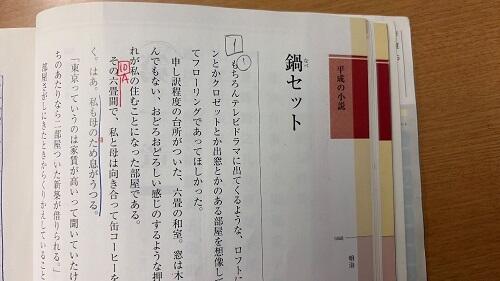 平成の小説
鍋セット
なべ
1
もちろんテレビドラマに出てくるような、ロフトに
ンとかクロゼットとか出窓とかのある部屋を想像して
てフローリングであってほしかった。
申し訳程度の台所がついた、六畳の和室。窓は木
んでもない、おどろおどろしい感じのするような押
れが私の住むことになった部屋である。
10
A
その六畳間で、私と母は向き合って缶コーヒーを
く。はあ。私も母のため息がうつる。
「東京っていうのは家賃が高いって聞いていたけ
ちのあたりなら二部屋ついた新築が借りられる。」
部屋さがしにきたときからくりかえしていること
明治